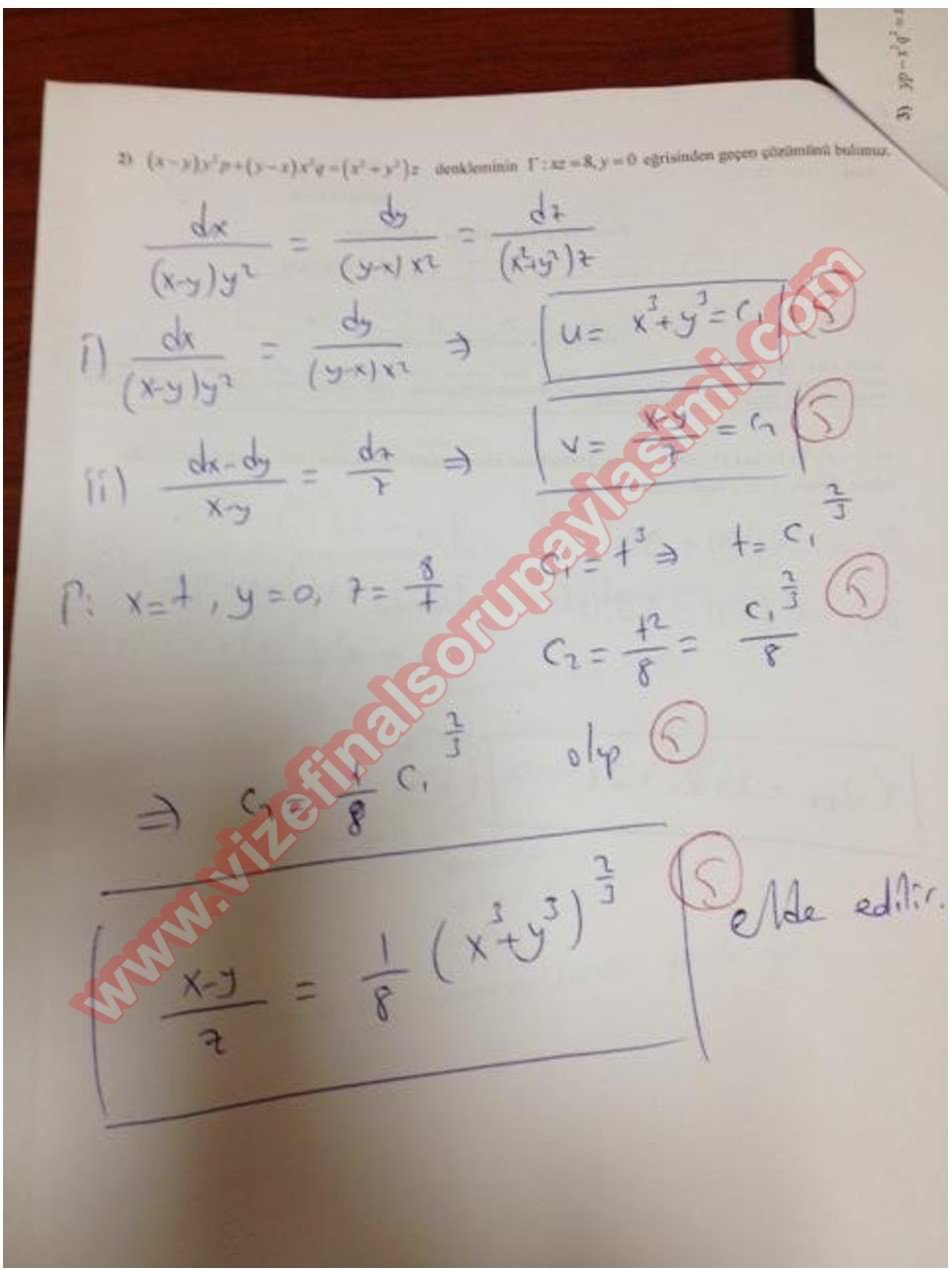 3) yp-x²q²=
2) (x-y)y²p+(y-x)x²q=(x²+y²)z denkleminin Γ:xz=8, y=0 eğrisinden geçen çözümünü bulunuz.
dx/((x-y)y²) = dy/((y-x)x²) = dz/((x²+y²)z)
i) dx/((x-y)y²) = dy/((y-x)x²) ⇒ u= x³+y³=c₁ 5
ii) (dx-dy)/(x-y) = dz/z ⇒ v= (x-y)/z = c₂ 5
Γ: x=t, y=0, z=8/t c₁=t³⇒ t=c₁^(2/3)
c₂= t²/8 = c₁^(2/3)/8 5
⇒ c₂= 1/8 c₁^(2/3) olup 5
(x-y)/z = 1/8 (x³+y³)^(2/3) 5 elde edilir.
www.vizefinalsorupaylasimi.com